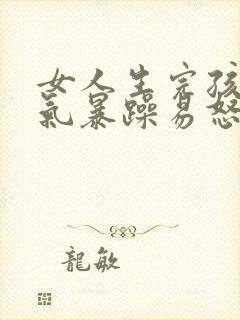 女人生完孩
氣暴躁易怒
龍敏